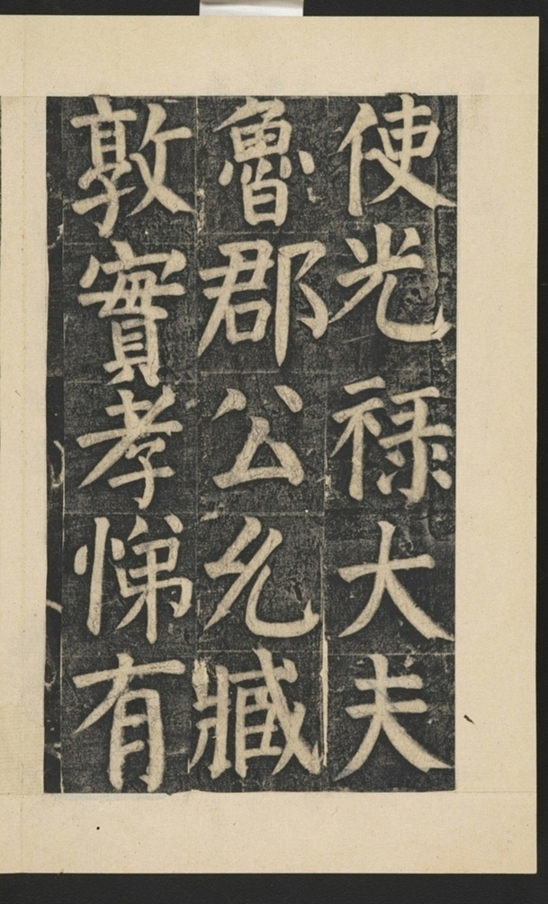 使光祿大夫
魯郡公允臧
敦實孝悌有